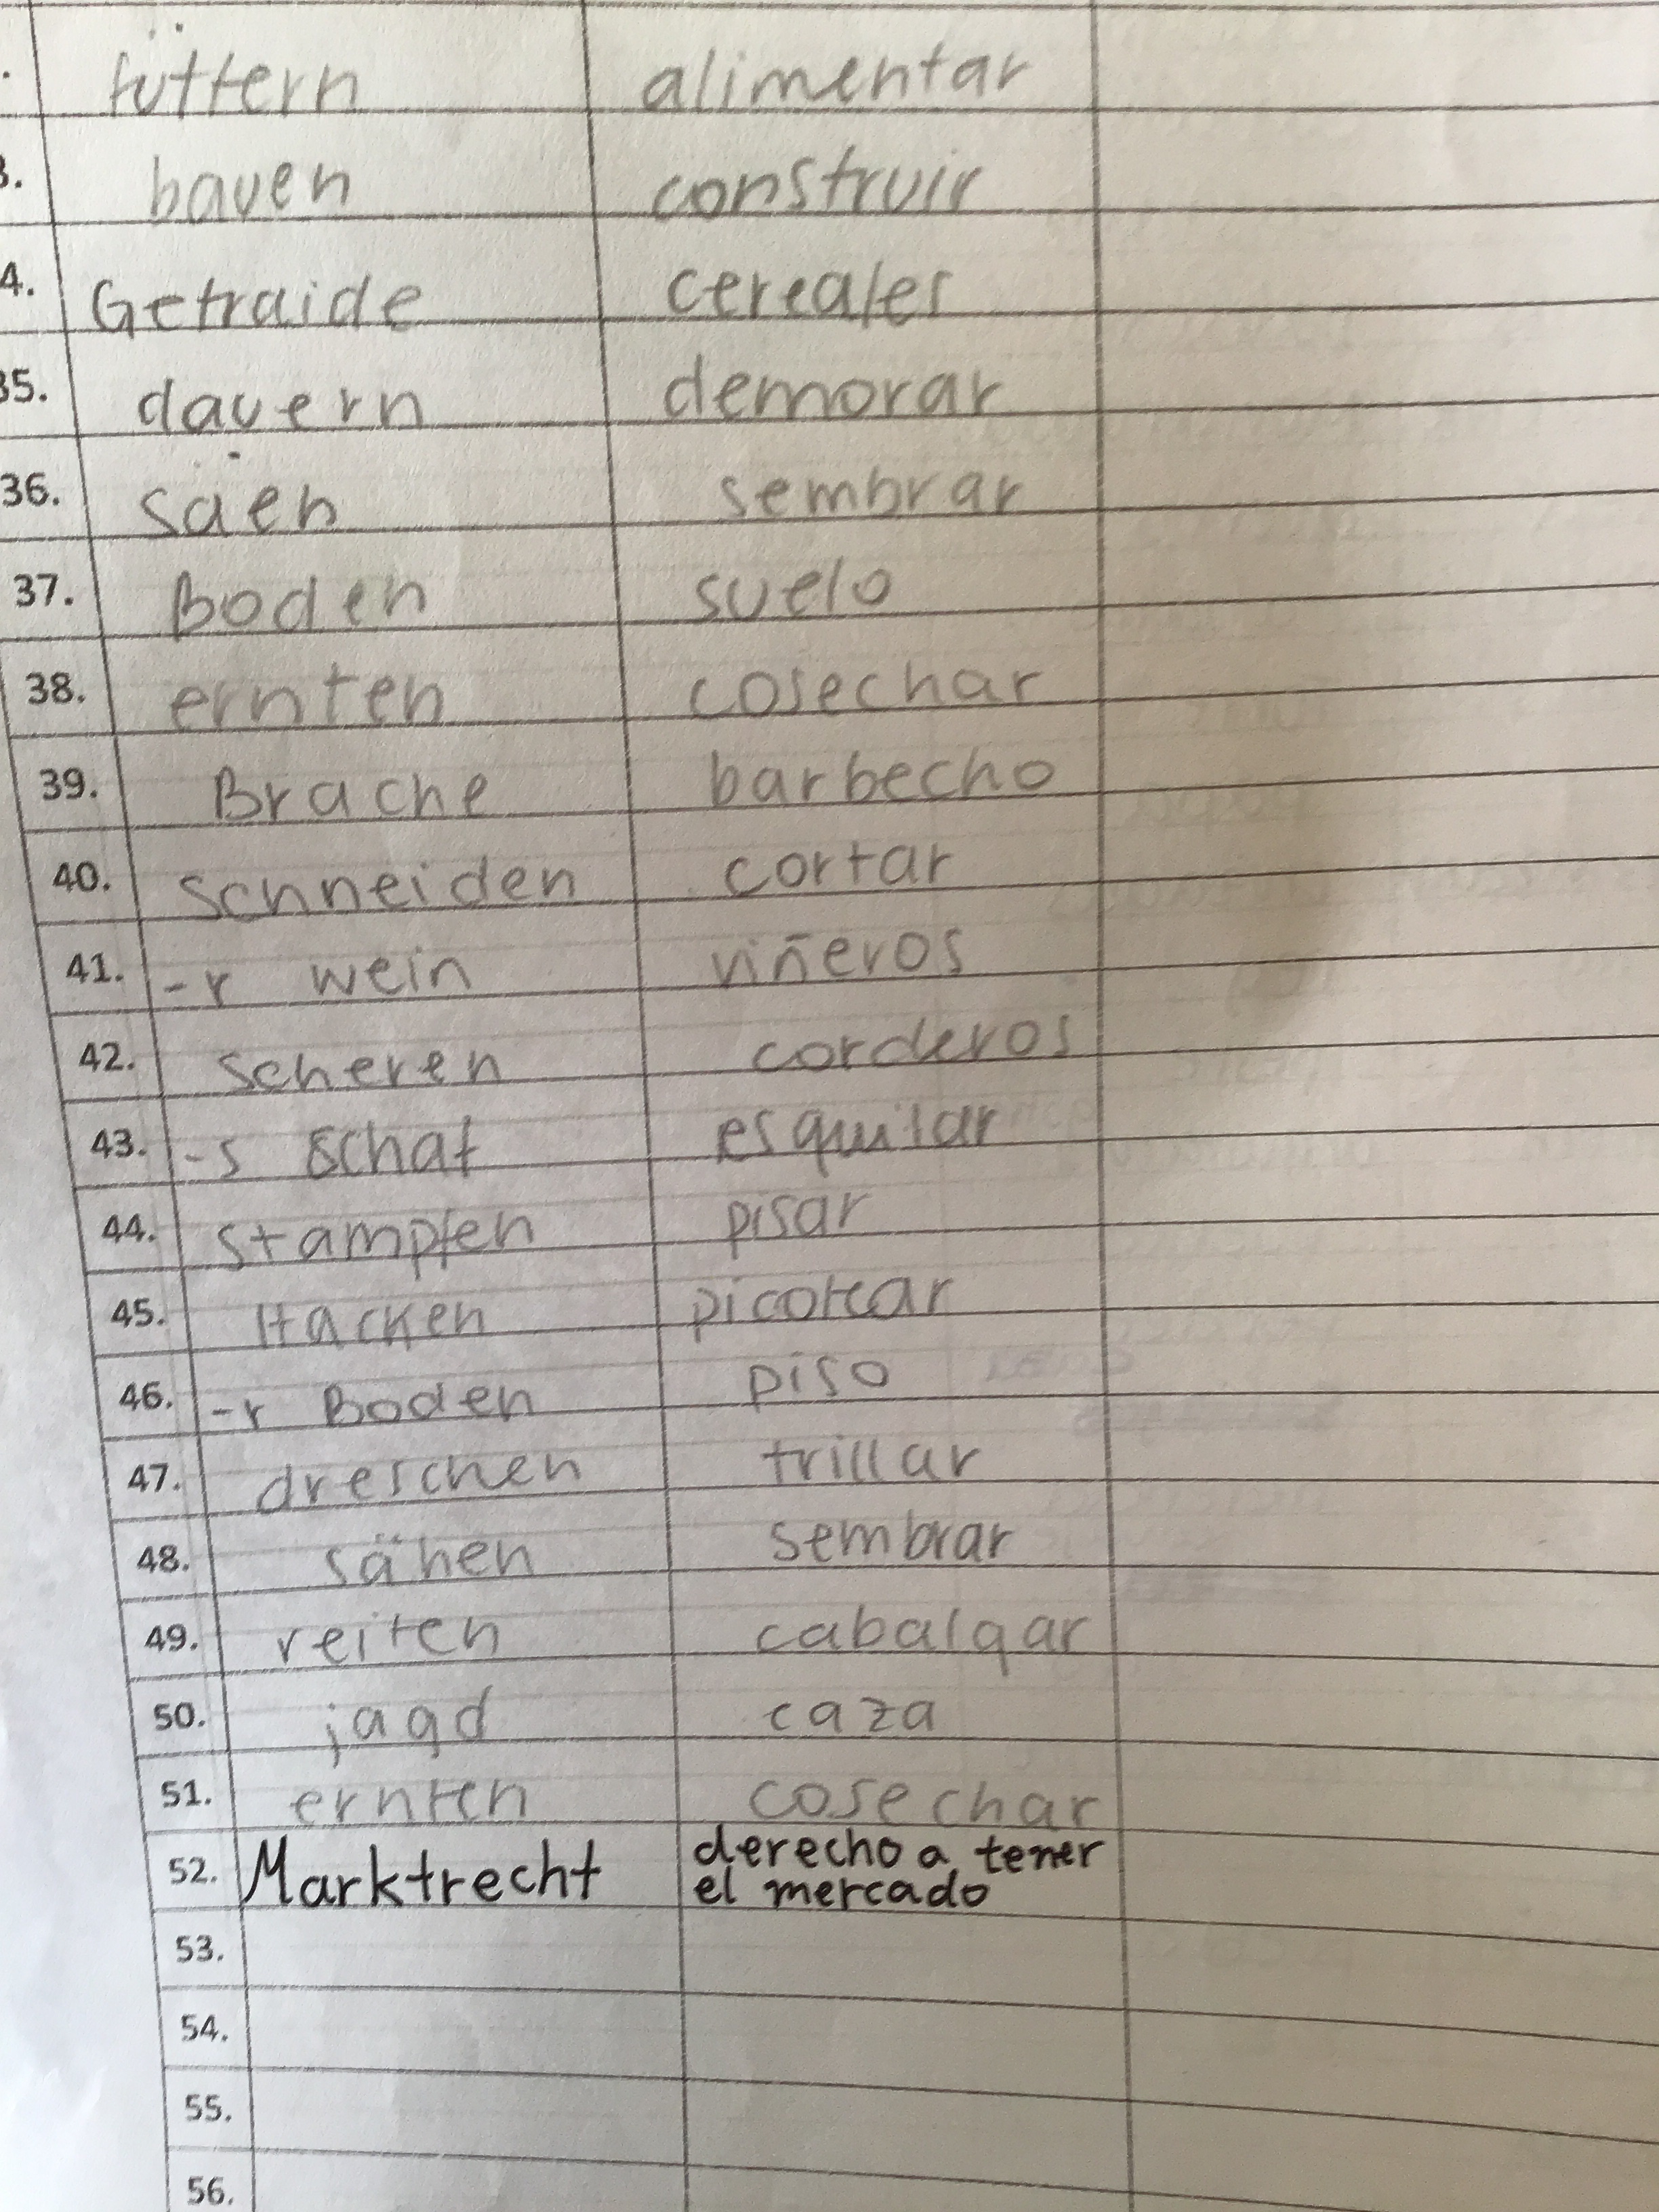 . füttern alimentar
3. bauen construir
4. Getraide cereales
35. dauern demorar
36. säen sembrar
37. Boden suelo
38. ernten cosechar
39. Brache barbecho
40. schneiden cortar
41. -r wein viñeros
42. scheren corderos
43. -s Schaf esquilar
44. stampfen pisar
45. Hacken picotear
46. -r Boden piso
47. dreschen trillar
48. sähen sembrar
49. reiten cabalgar
50. jagd caza
51. ernten cosechar
52. Marktrecht derecho a tener
el mercado
53.
54.
55.
56.